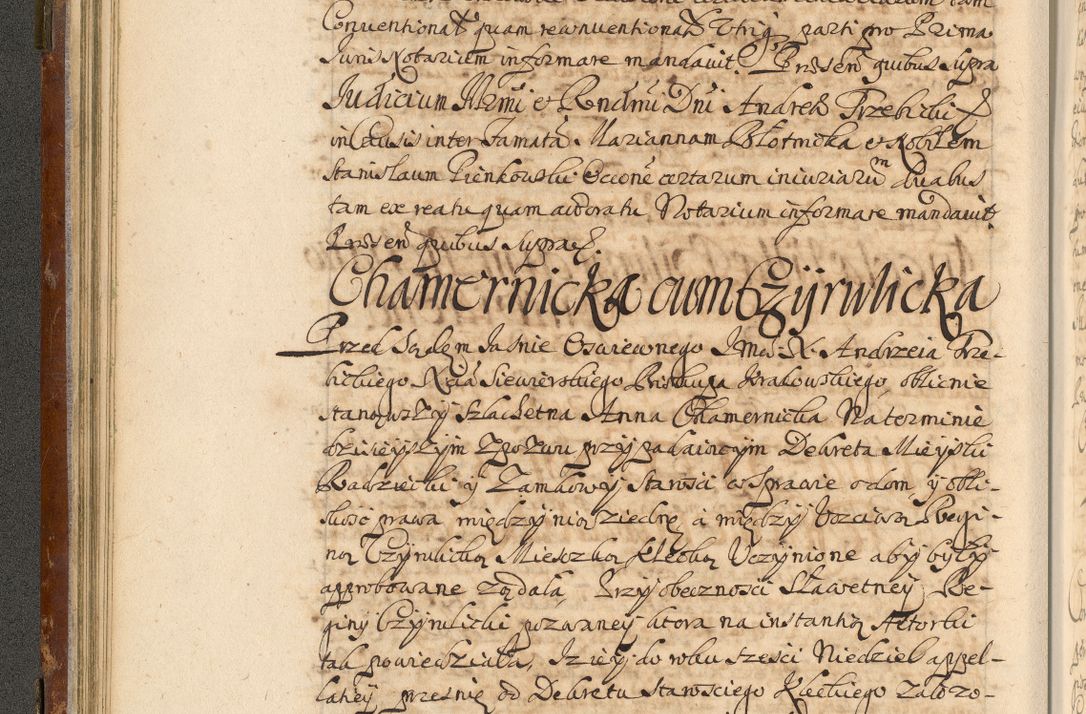 Conventionał quam reconventionał Utriq parti pro Prima
Iuris Notarium informare mandavit. Prńsen quibus supra
Iudicium Illmi et Rńdmi Dńi Andreæ Trzebicki &
in Causis inter Famatã Mariannam Błotnicka et Nobilem
Stanislaum Pienkowski Occoñe certarum iniuriaru͂m duabus
tam ex reatu quam actoratu Notarium informare mandavit
Prńsen quibus supra &.
Chamernicka cum Czyrulicka
Przed Sądem Iaśnie Oswiewnego Imci X. Andrzeia Trze-
bickiego Xcia Siewierskiego Biskupa Krakowskiego, oblicnie
stanąwszy Szlachetna Anna Chamernicka Na terminie
dzisieyszym z pozwu przypadaiącym Dekreta Mieyski
Radziecki y Zamkowy Starości w Sprawie o dom y obli-
skość prawa między nią ziedne, a między Uczciwą Regi-
ną Czyrulicką Mieszką Klecką Uczynione aby były
approbowane żądała, Przy obecznosci Sławetney Re-
giny Czyrulicki pozwaney ktora na instantią Aktorki
tak powiedziała, Iz iey do roku sześci Niedziel appel-
laciey prętsnie do Dekretu Starosciego Kieckiego założo-